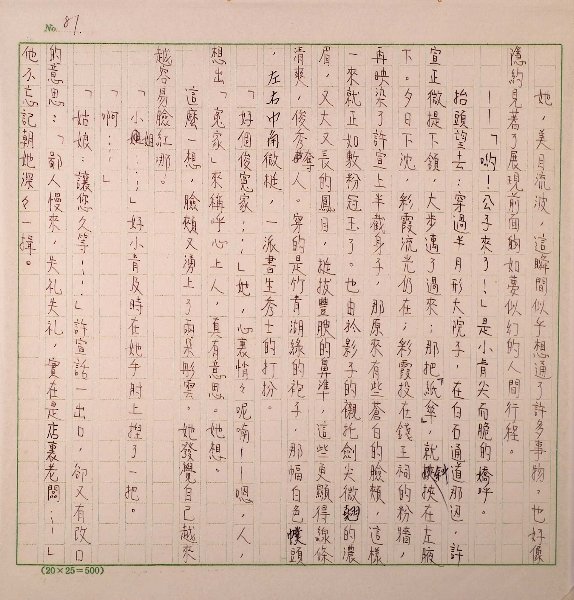 No. 81.
她，美目流波，這瞬間似乎想通了許多事物。也好像
隱約見著了展現前面的如夢似幻的人間行程。
——「喲！公子來了！」是小青尖而脆的嬌呼。
抬頭望去：穿過半月形大院子，在白石通道那邊，許
宣正微提下頷，大步邁了過來；那把「紙傘」就斜挾在左腋
下。夕日下沈，彩霞流光仍在；彩霞投在錢王祠的粉牆，
再映染了許宣上半截身子，那原來有些蒼白的臉頰，這樣
一來就正如敷粉冠玉了。也由於影子的襯托劍尖微翹的濃
眉，又大又長的鳳目，挺拔豐腴的鼻準，這些更顯得線條
清爽，俊秀奪人。穿的是竹青湖綠的袍子，那幅白色幞頭
，左右巾角微維，一派書生秀士的打扮。
「好個俊冤家……」她，心裏悄々呢喃——嗯，人，
想出「冤家」來稱呼心上人，真有意思。她想。
這麼一想，臉頰又湧上了兩朵彤雲。她發覺自己越來
越容易臉紅哪。
「小姐……」好小青及時在她手肘上捏了一把。
「啊……」
「姑娘：讓您久等……」許宣話一出口，卻又有改口
的意思：「鄙人慢來，失礼失礼，實在是店裏老闆……」
他不忘記朝她深々一揖。
(20×25=500)